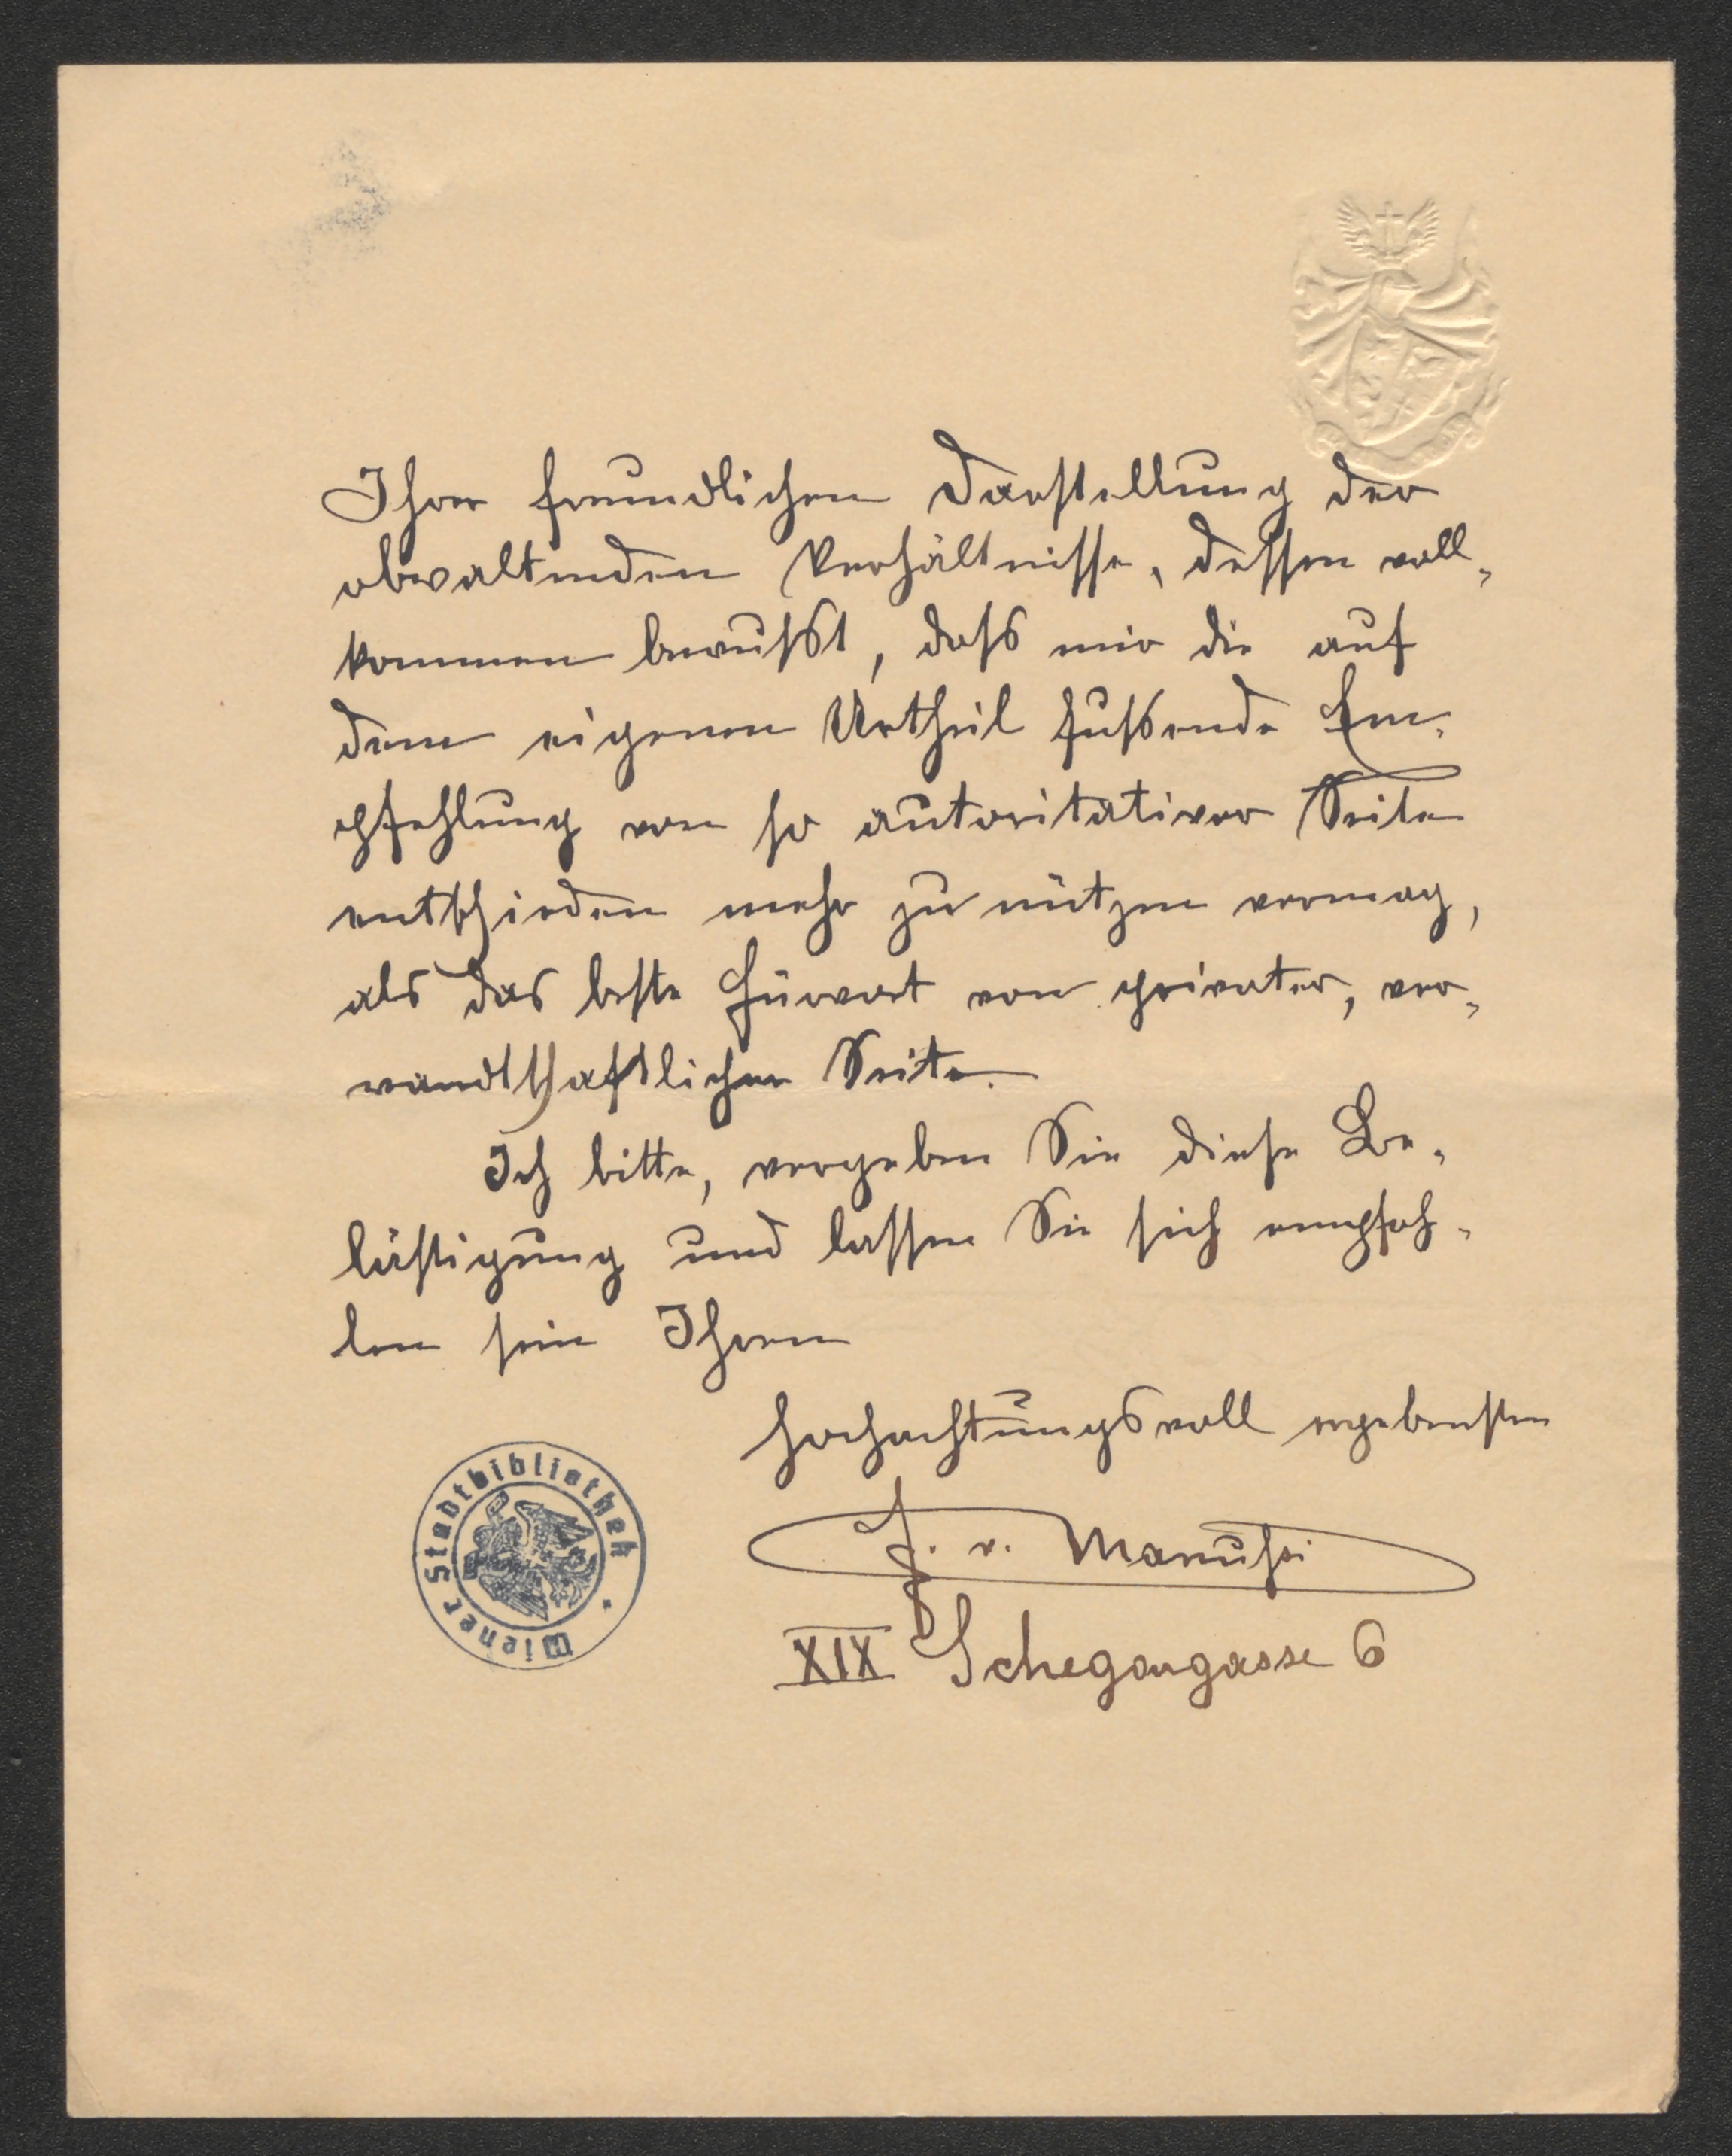 Ihrer freundlichen Darstellung der
obwaltenden Verhältnisse, dessen voll„
kommen bewußt, daß mir die auf
dem eigenen Urtheil fußende Em„
pfehlung von so autoritativer Seite
entschieden mehr zu nützen vermag,
als das beste Fürwort von privater, ver„
wandtschaftlicher Seite.
Ich bitte, vergeben Sie diese Be„
lästigung und lassen Sie sich empfoh„
len sein Ihren
hochachtungsvoll ergebensten
v. Manussi
XIX Schegargasse 6
Wiener Stadtbibliothek